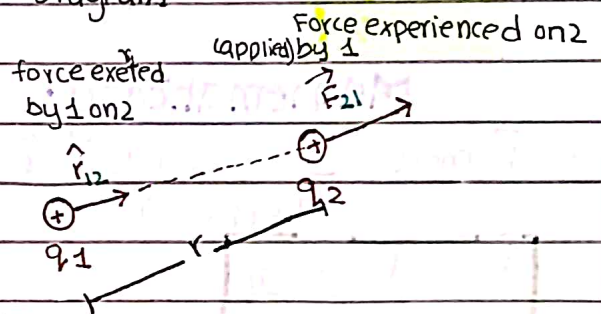 Diagram
Force experienced on 2
(applied) by 1
force exerted
by 1 on 2
F21
r̂12
q1
q2
r